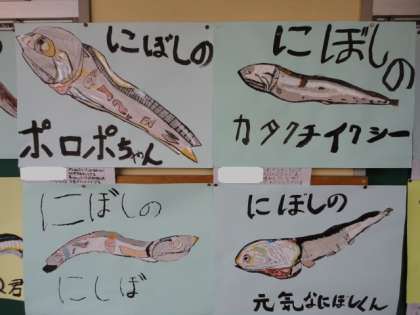 にぼしの
ポロポちゃん
にぼしの
カタクチイクシー
にぼしの
にしば
にぼしの
元気なにぼしくん
君